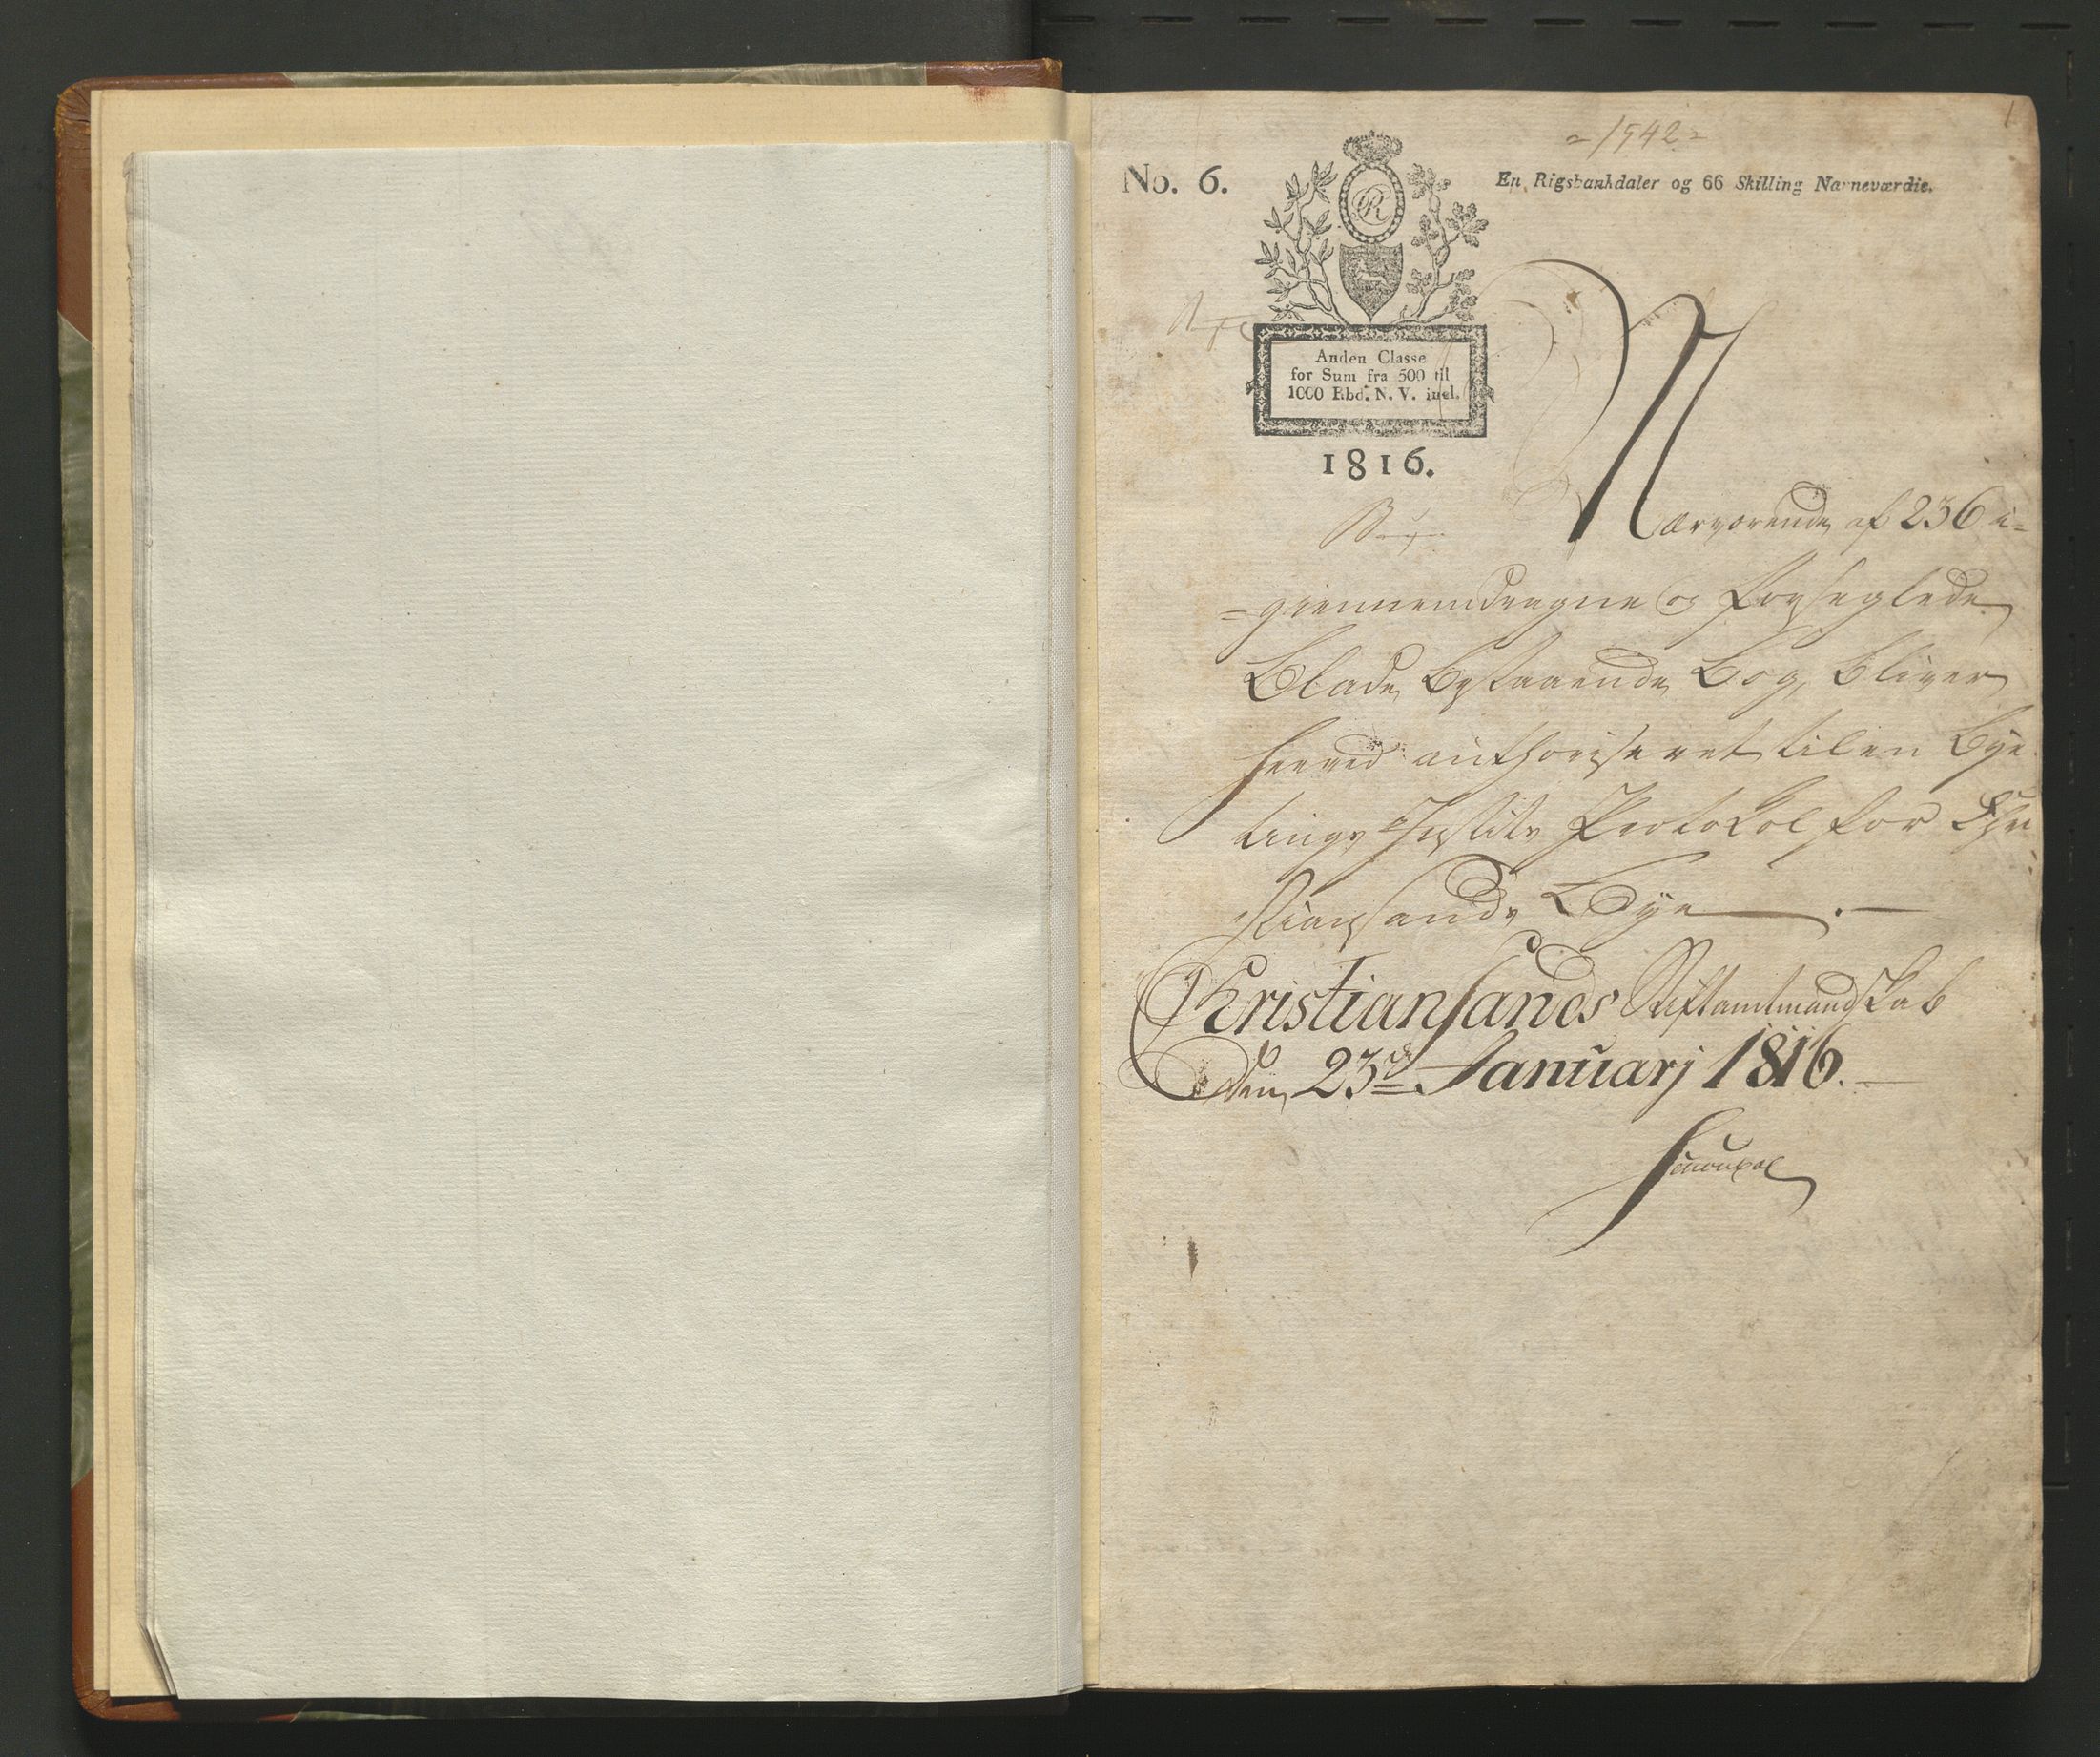 1
- 1542 -
No. 6.
En Rigsbankdaler og 66 Skilling Navneværdie.
R
Anden Classe
for Sum fra 500 til
1000 Rbd. N. V. incl.
1816.
Nærværende af 236 i-
-giennemdragne og forseglede
Blade bestaaende Bog, bliver
herved authoriseret til en Bye
tings Justits Protokol for Chri
stiansands Bye
Christiansands Stiftamtmandskab
den 23de Januarj 1816.